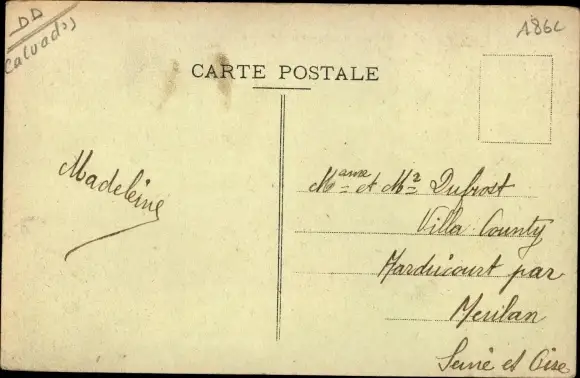 DD
Calvados
186c
CARTE POSTALE
Madeleine
Mame et Mr Dufrost
Villa County
Hardricourt par
Meulan
Seine et Oise